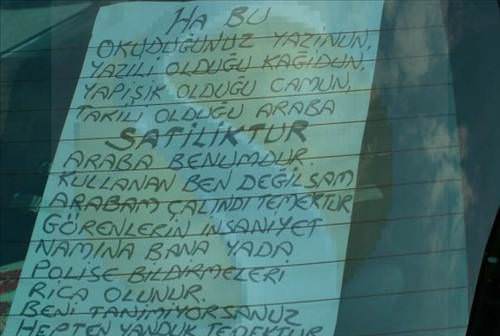 HA BU
OKUDUĞUNUZ YAZİNUN,
YAZILI OLDUĞU KAĞIDUN,
YAPIŞIK OLDUĞU CAMUN,
TAKILI OLDUĞU ARABA
SATİLİKTUR
ARABA BENUMDUR.
KULLANAN BEN DEĞİLSAM
ARABAM ÇALINDI TEMEKTUR
GÖRENLERİN İNSANİYET
NAMINA BANA YADA
POLİSE BİLDİRMELERİ
RİCA OLUNUR.
BENİ TANIMIYORSANUZ
HEPTEN YANDUK TEMEKTUR